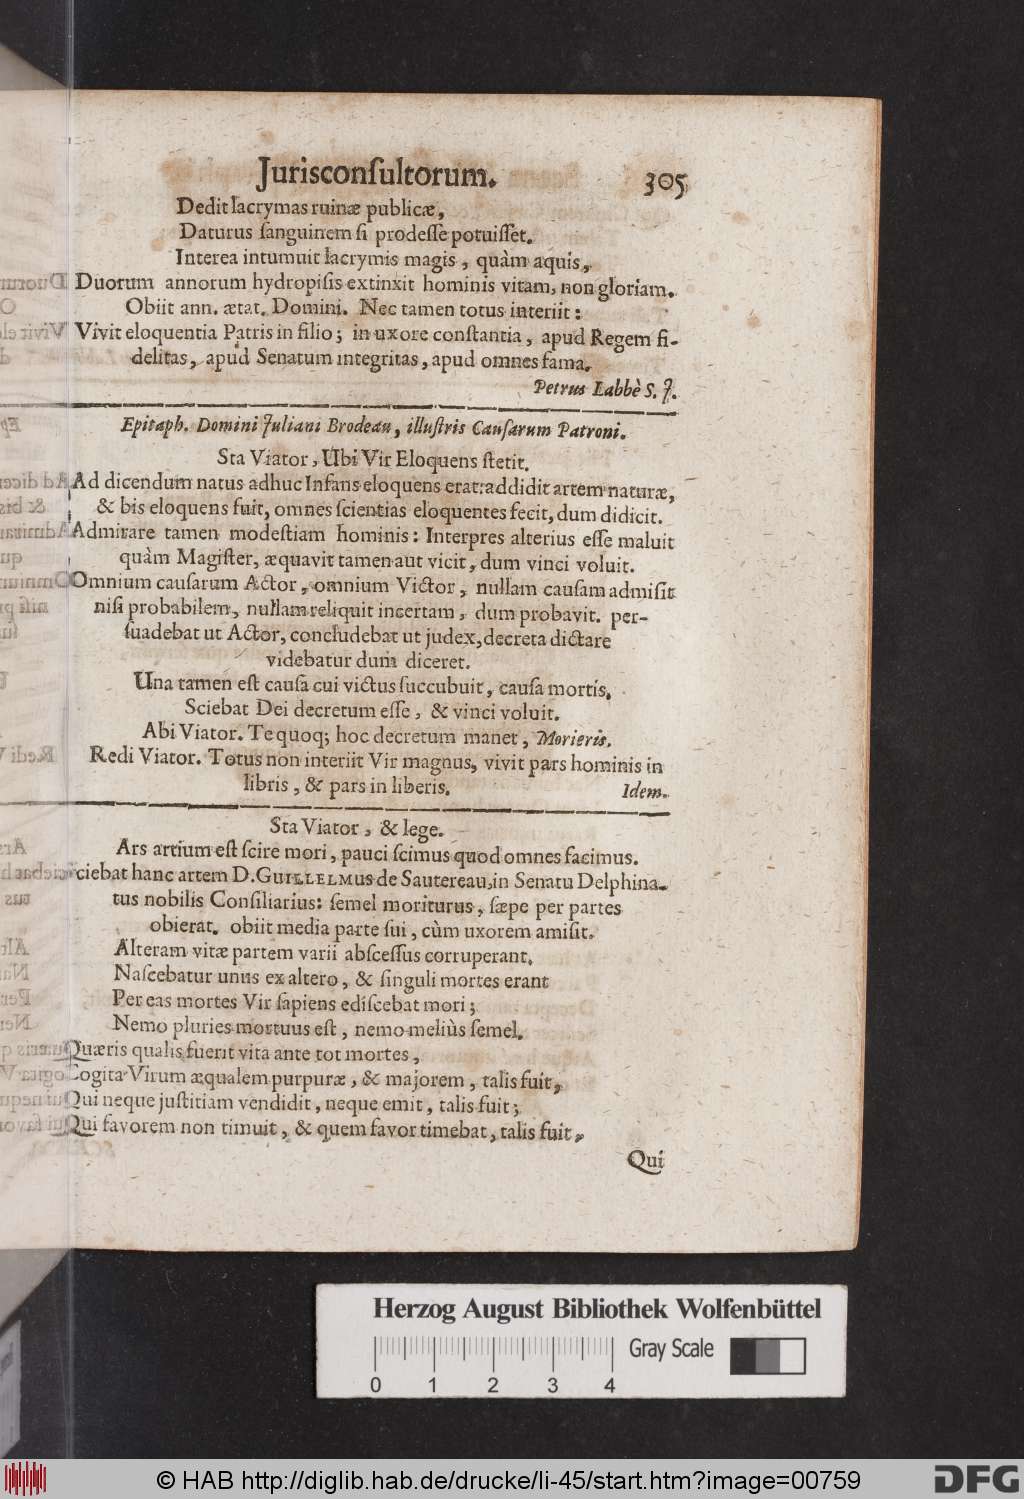 Jurisconſultorum. 305
Dedit lacrymas ruinæ publicæ,
Daturus ſanguinem ſi prodeſſe potuiſſet.
Interea intumuit lacrymis magis, quàm aquis,
Duorum annorum hydropiſis extinxit hominis vitam, non gloriam.
Obiit ann. ætat. Domini. Nec tamen totus interiit:
Vivit eloquentia Patris in filio; in uxore conſtantia, apud Regem fi-
delitas, apud Senatum integritas, apud omnes fama.
Petrus Labbè S. J.
Epitaph. Domini Juliani Brodeau, illuſtris Cauſarum Patroni.
Sta Viator, Ubi Vir Eloquens ſtetit.
Ad dicendum natus adhuc Infans eloquens erat: addidit artem naturæ,
& bis eloquens fuit, omnes ſcientias eloquentes fecit, dum didicit.
Admirare tamen modeſtiam hominis: Interpres alterius eſſe maluit
quàm Magiſter, æquavit tamen aut vicit, dum vinci voluit.
Omnium cauſarum Actor, omnium Victor, nullam cauſam admiſit
niſi probabilem, nullam reliquit incertam, dum probavit. per-
ſuadebat ut Actor, concludebat ut judex, decreta dictare
videbatur dum diceret.
Una tamen eſt cauſa cui victus ſuccubuit, cauſa mortis.
Sciebat Dei decretum eſſe, & vinci voluit.
Abi Viator. Te quoq; hoc decretum manet, Morieris.
Redi Viator. Totus non interiit Vir magnus, vivit pars hominis in
libris, & pars in liberis. Idem.
Sta Viator, & lege.
Ars artium eſt ſcire mori, pauci ſcimus quod omnes facimus.
ciebat hanc artem D. GUILLELMUS de Sautereau, in Senatu Delphina-
tus nobilis Conſiliarius: ſemel moriturus, ſæpe per partes
obierat. obiit media parte ſui, cùm uxorem amiſit.
Alteram vitæ partem varii abſceſſus corruperant.
Naſcebatur unus ex altero, & ſinguli mortes erant
Per eas mortes Vir ſapiens ediſcebat mori;
Nemo pluries mortuus eſt, nemo meliùs ſemel.
Quæris qualis fuerit vita ante tot mortes,
Cogita Virum æqualem purpuræ, & majorem, talis fuit,
Qui neque juſtitiam vendidit, neque emit, talis fuit;
Qui favorem non timuit, & quem favor timebat, talis fuit,
Qui
Herzog August Bibliothek Wolfenbüttel
Gray Scale
0 1 2 3 4
© HAB http://diglib.hab.de/drucke/li-45/start.htm?image=00759
DFG